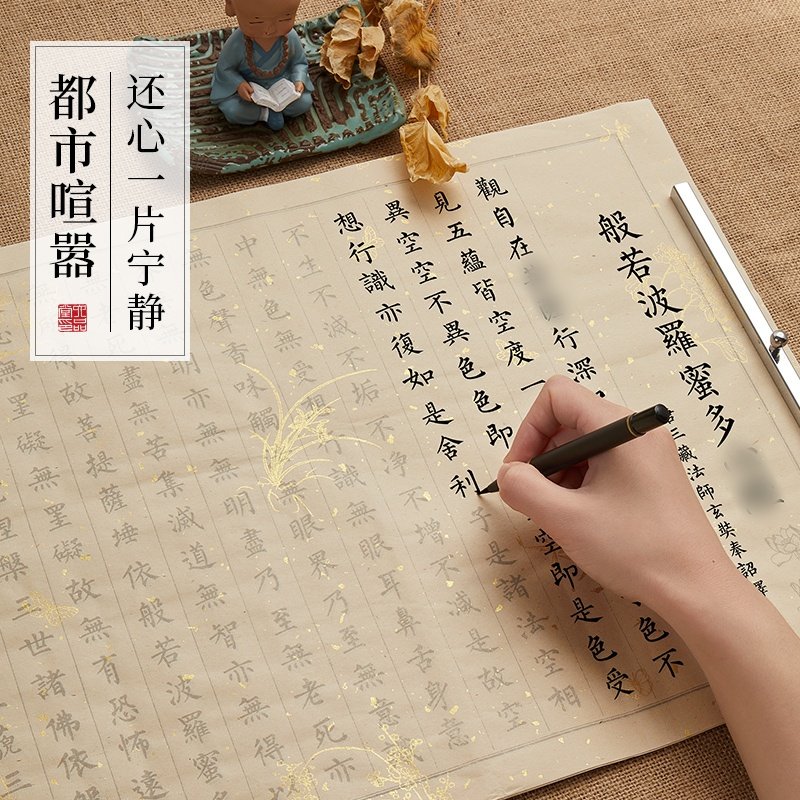 都市喧嚣
还心一片宁静
般若波羅蜜多
三藏法師玄奘奉詔譯
觀自在行深
見五蘊皆空度一色不
異空空不異色色即空即是色受
想行識亦復如是舍利子是諸法空相
不生不滅不垢不淨不增不減是故空
中無色無受想行識無眼耳鼻舌身意
色聲香味觸無眼界乃至無意
無明亦無無明盡乃至無老死亦
死盡無苦集滅道無智亦無得
得故菩提薩埵依般若波羅蜜多
心無罣礙無罣礙故無有恐怖遠
槃三世諸佛依